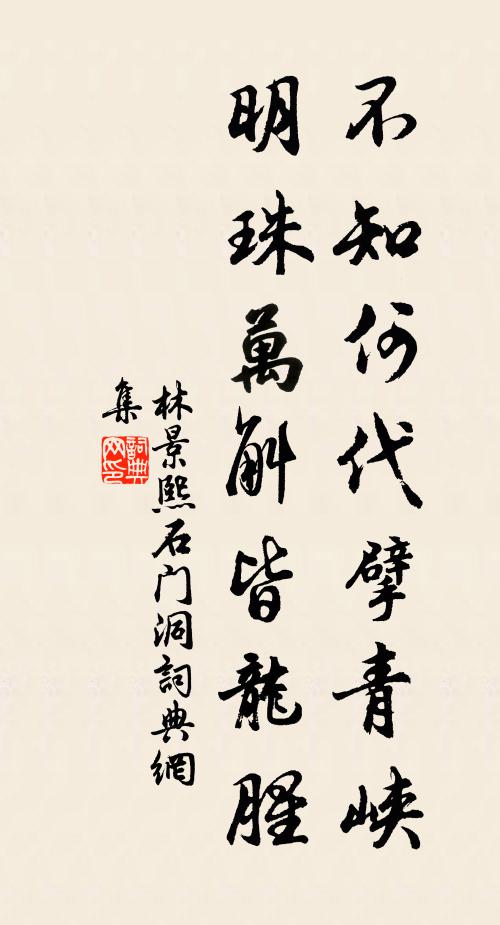 不知何代擘青峽
明珠萬斛皆龍腥
林景熙石门洞詞典網
集
詞典网印